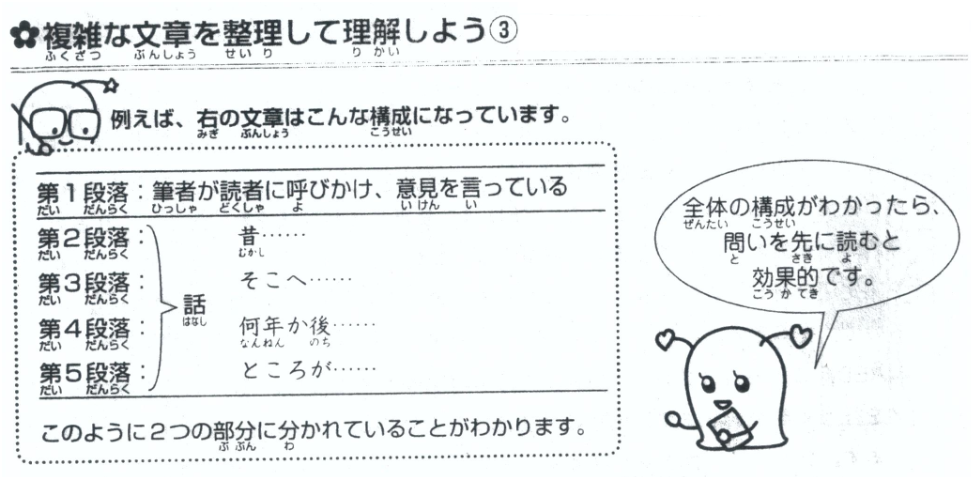 ✿複雑な文章を整理して理解しよう③
ふくざつ ぶんしょう せいり りかい
例えば、右の文章はこんな構成になっています。
みぎ ぶんしょう こうせい
第1段落：筆者が読者に呼びかけ、意見を言っている
だい だんらく ひっしゃ どくしゃ よ いけん い
第2段落： 昔……
だい だんらく むかし
第3段落： そこへ……
だい だんらく
話
はなし
第4段落： 何年か後……
だい だんらく なんねん のち
第5段落： ところが……
だい だんらく
このように2つの部分に分かれていることがわかります。
ぶぶん わ
全体の構成がわかったら、
ぜんたい こうせい
問いを先に読むと
と さき よ
効果的です。
こうかてき